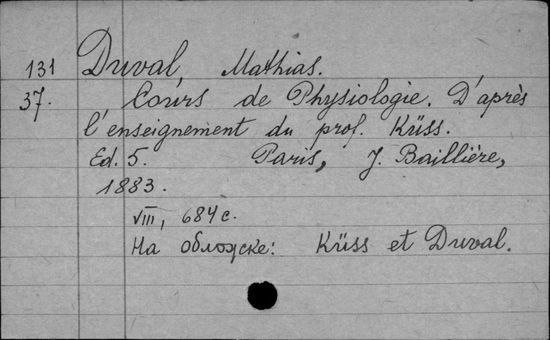 131 Duval, Mathias.
37. Cours de Physiologie. D'après
l'enseignement du prof. Küss.
Ed. 5. Paris, J. Baillière,
1883.
VIII, 684 с.
На обложке: Küss et Duval.